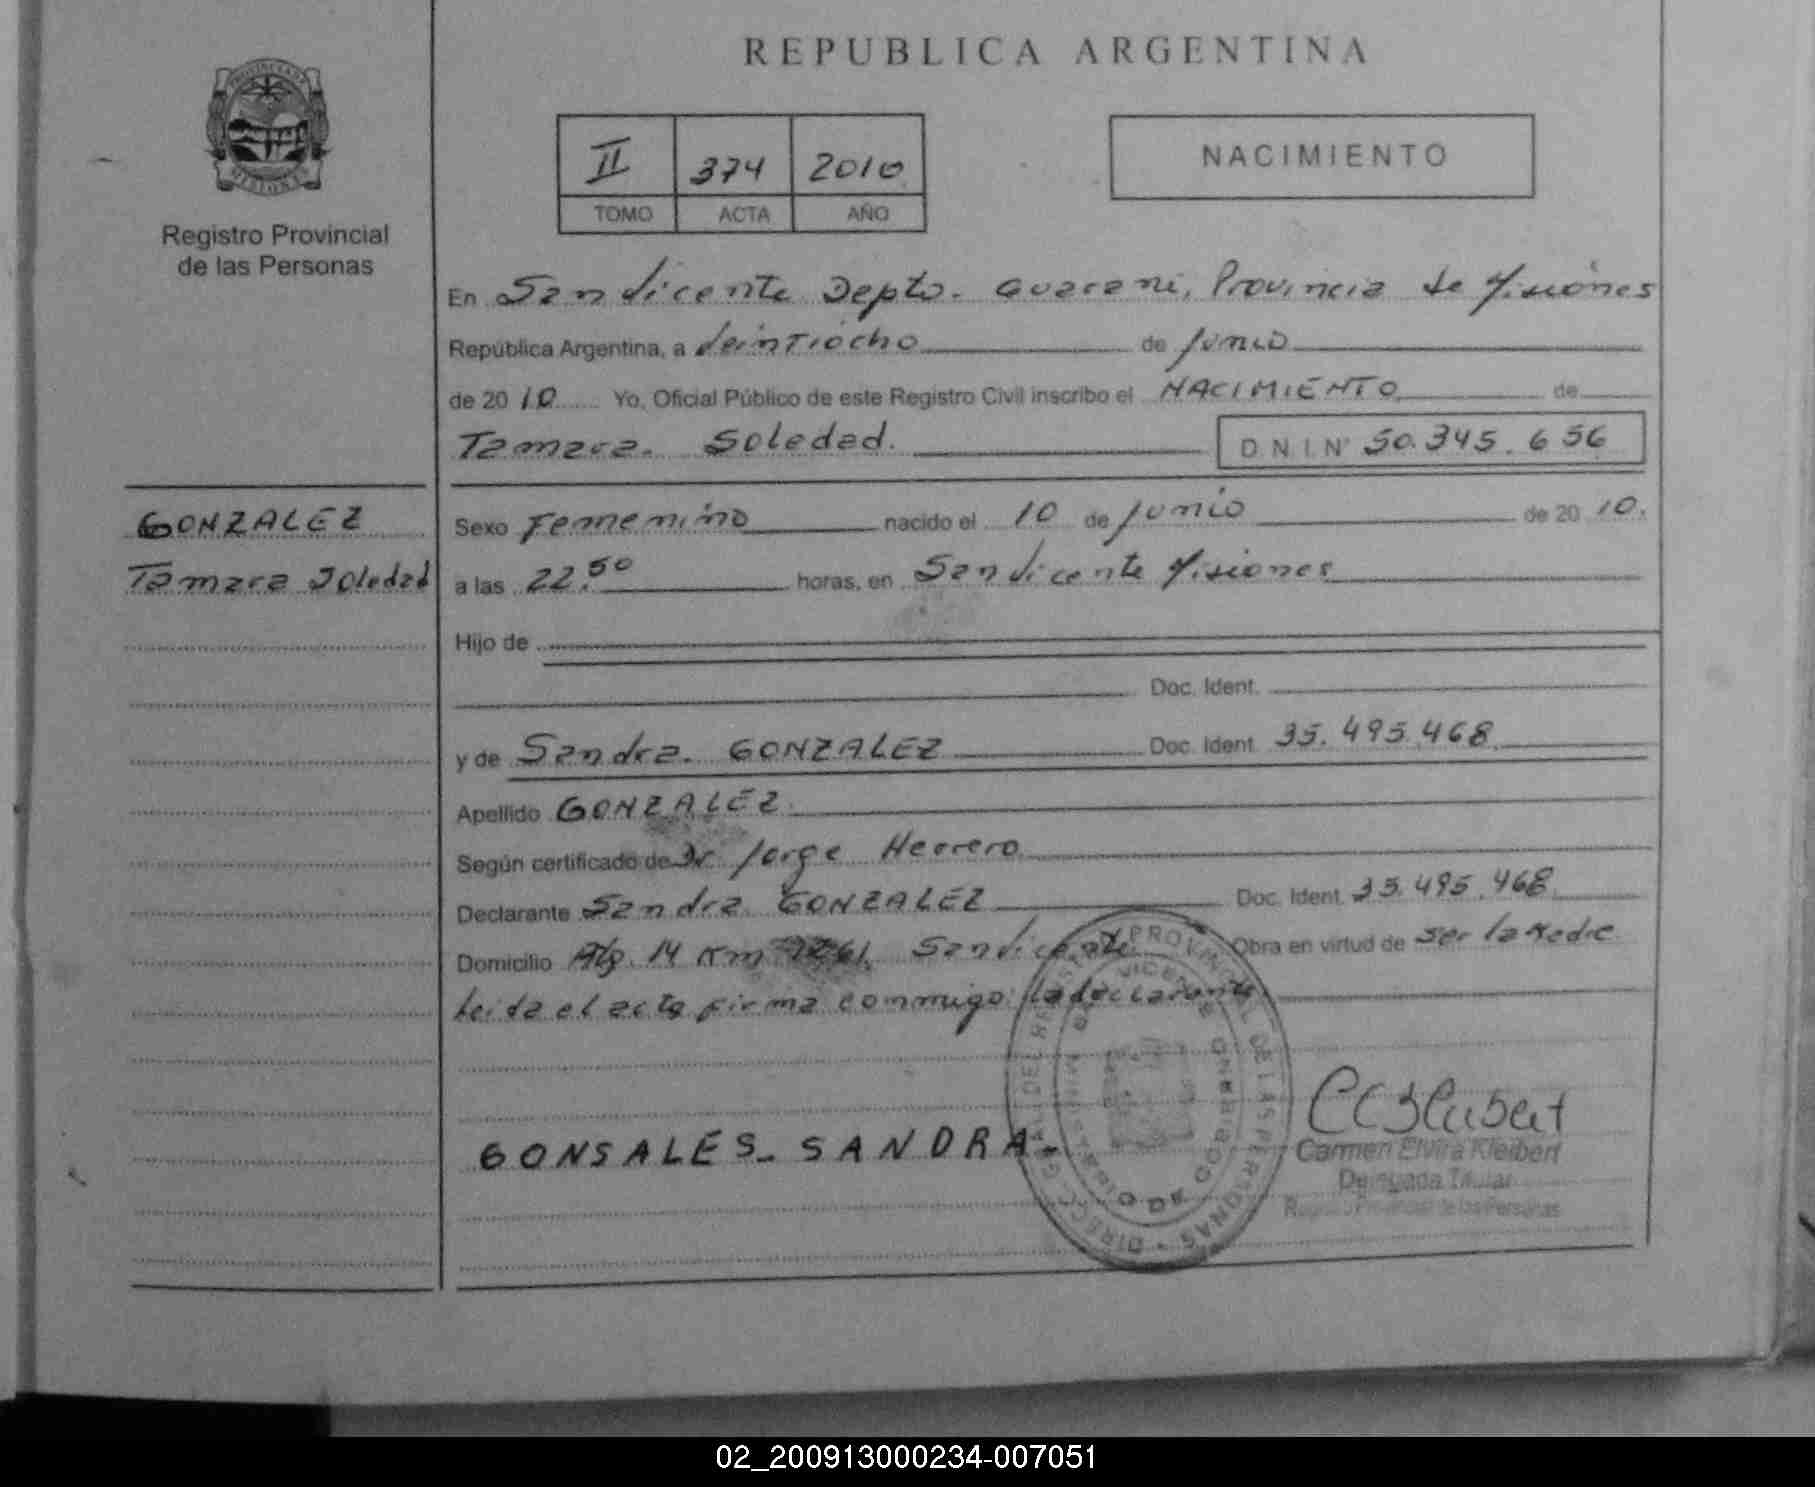 REPUBLICA ARGENTINA
PROVINCIA DE MISIONES
Registro Provincial
de las Personas
II 374 2010
TOMO ACTA AÑO
NACIMIENTO
En San Vicente Depto. Guarani, Provincia de Misiones
República Argentina, a Veintiocho de Junio
de 2010 Yo, Oficial Público de este Registro Civil inscribo el NACIMIENTO de
Tamara. Soledad. D.N.I. Nº 50.345.656
GONZALEZ
Tamara Soledad
Sexo Femenino nacido el 10 de Junio de 2010.
a las 22.50 horas, en San Vicente Misiones
Hijo de
Doc. Ident.
y de Sandra. GONZALEZ Doc. Ident. 35.495.468
Apellido GONZALEZ.
Según certificado de Dr. Jorge Herrero
Declarante Sandra GONZALEZ Doc. Ident. 35.495.468
Domicilio 14 Km San Vicente Obra en virtud de ser la Madre
Leida el acta firma conmigo la declarante
GONSALES_ SANDRA.
Carmen Elvira Kleibert
Delegada Titular
Registro Provincial de las Personas
DIRECC. GRAL DEL REGISTRO PROVINCIAL DE LAS PERSONAS
02_200913000234-007051